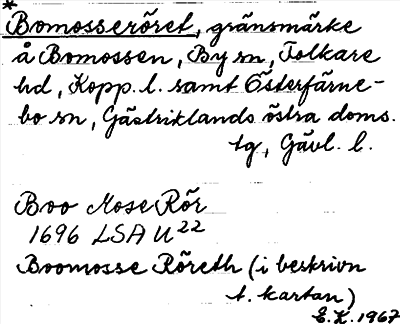 * Bomosseröret, gränsmärke
å Bomossen, By sn, Folkare
hd, Kopp. l. samt Österfärne-
bo sn, Gästriklands östra doms.
tg, Gävl. l.
Boo Mose Rör
1696 LSA U22
Boomosse Röreth (i beskrivn
t. kartan)
E.K. 1967